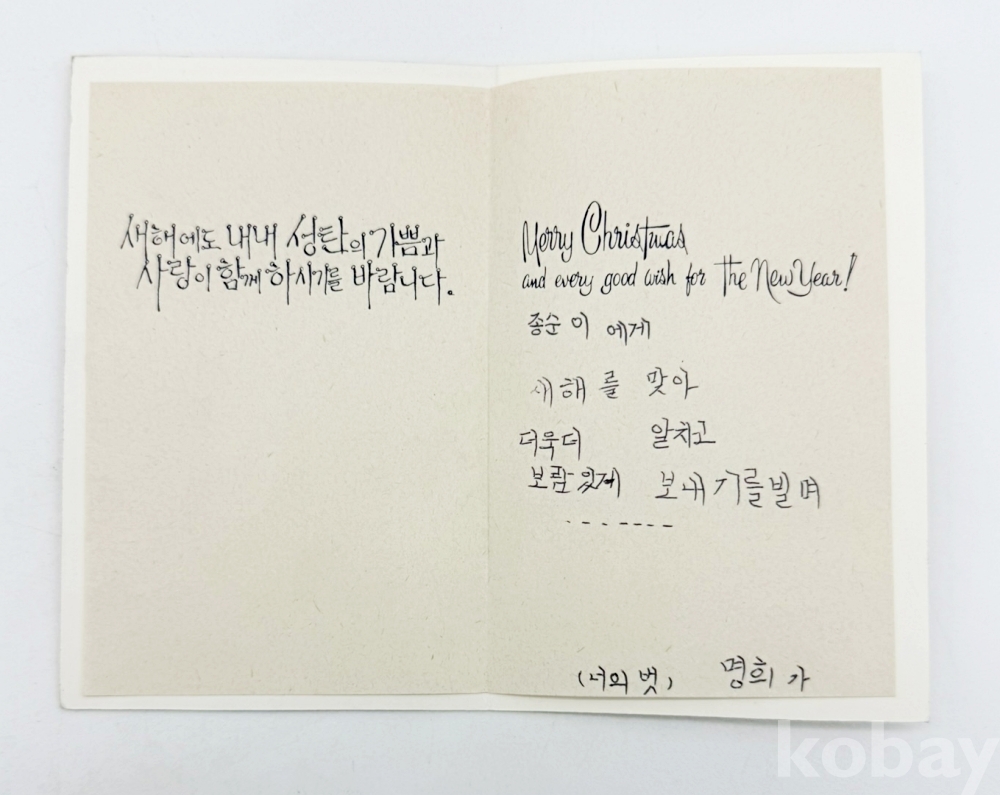 새해에도 내내 성탄의 기쁨과
사랑이 함께 하시기를 바랍니다.
Merry Christmas
and every good wish for the New Year!
종순이 에게
새해를 맞아
더욱더 알차고
보람있게 보내기를빌며
- - - - - - -
(너의 벗) 명희가
kobay